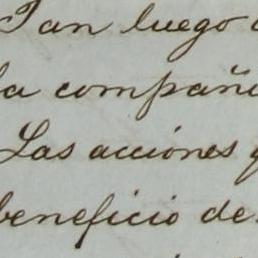 Tan luego
la compañi
Las acciones
beneficio de